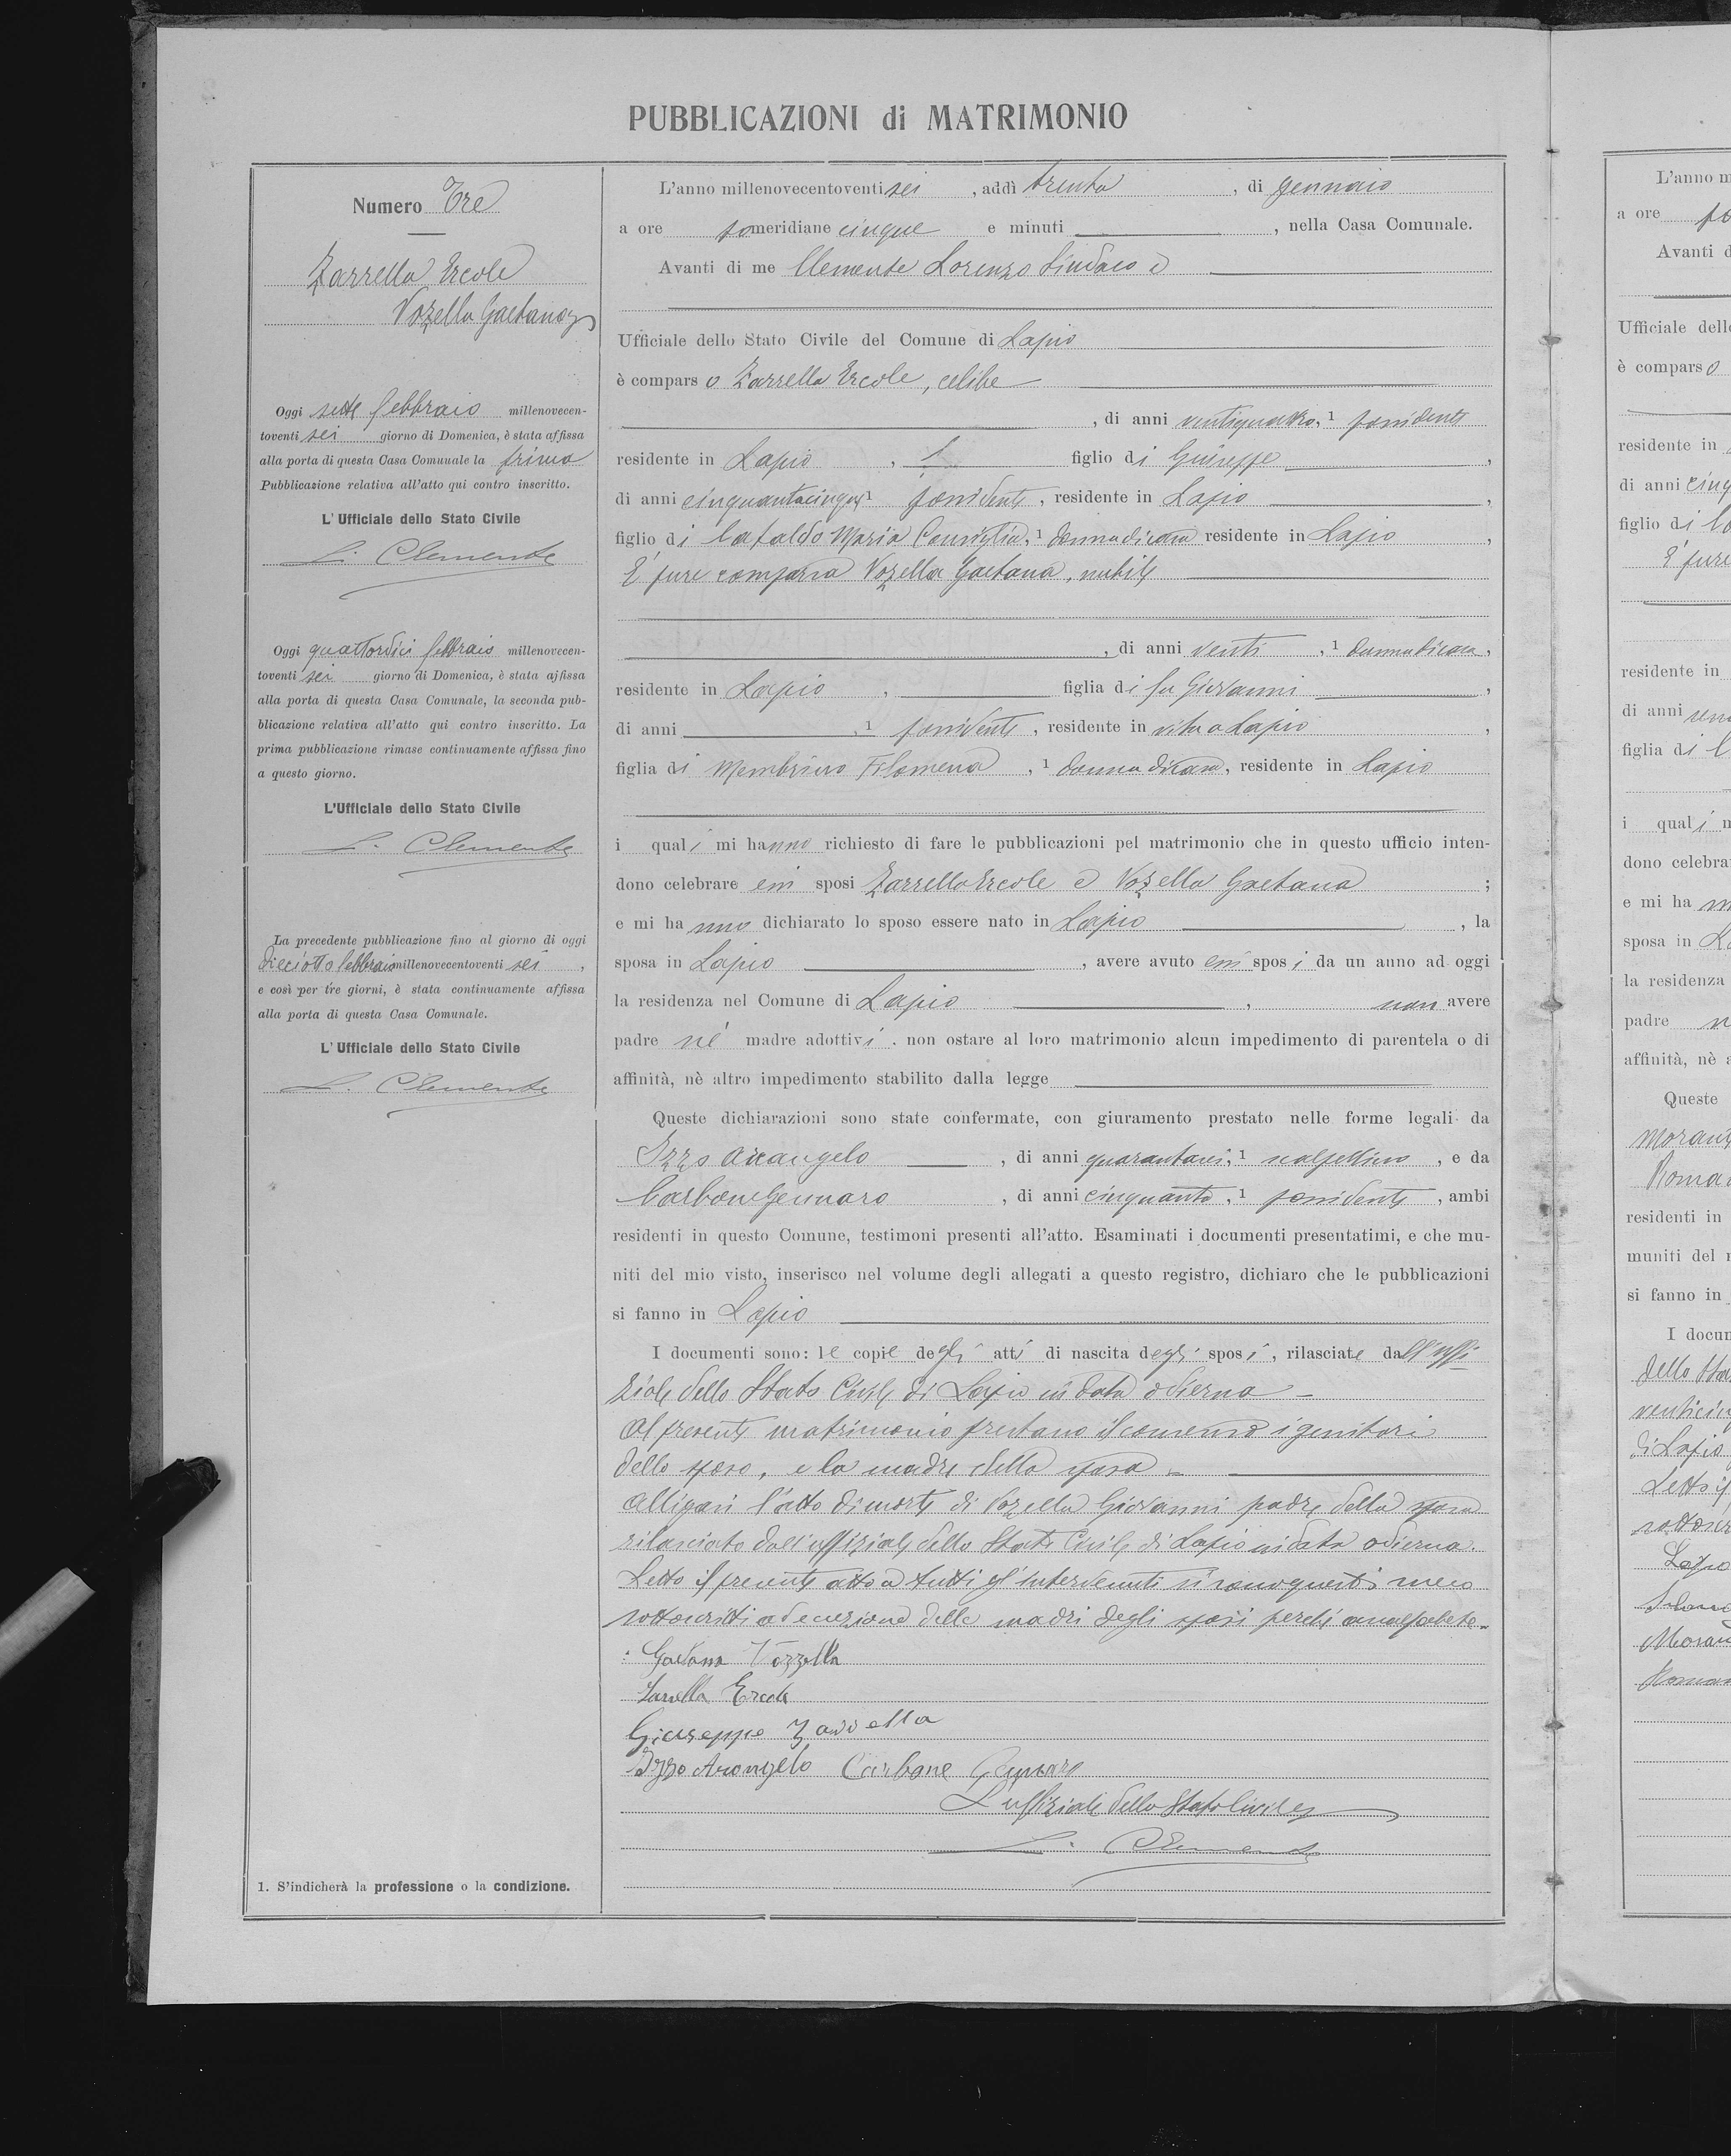 PUBBLICAZIONI di MATRIMONIO
Numero Tre
Zarrella Ercole
Vozella Gaetana
Oggi sette febbraio millenovecen-
toventi sei giorno di Domenica, è stata affissa
alla porta di questa Casa Comunale la prima
Pubblicazione relativa all'atto qui contro inscritto.
L'Ufficiale dello Stato Civile
L. Clemente
Oggi quattordici febbraio millenovecen-
toventi sei giorno di Domenica, è stata affissa
alla porta di questa Casa Comunale, la seconda pub-
blicazione relativa all'atto qui contro inscritto. La
prima pubblicazione rimase continuamente affissa fino
a questo giorno.
L'Ufficiale dello Stato Civile
L. Clemente
La precedente pubblicazione fino al giorno di oggi
dieciotto febbraio millenovecentoventi sei ,
e così per tre giorni, è stata continuamente affissa
alla porta di questa Casa Comunale.
L'Ufficiale dello Stato Civile
L. Clemente
1. S'indicherà la professione o la condizione.
L'anno millenovecentoventi sei , addì trenta , di gennaio
a ore pomeridiane cinque e minuti , nella Casa Comunale.
Avanti di me Clemente Lorenzo Sindaco e
Ufficiale dello Stato Civile del Comune di Lapio
è comparso Zarrella Ercole, celibe
, di anni ventiquattro, 1 possidente
residente in Lapio , figlio di Guiseppe ,
di anni cinquantacinque 1 possidente, residente in Lapio ,
figlio di Cataldo Maria Consiglia, 1 donna di casa residente in Lapio ,
È pure comparsa Vozella Gaetana, nubile
, di anni venti , 1 donna di casa,
residente in Lapio , figlia di fu Giovanni ,
di anni , 1 possidente, residente in vita a Lapio ,
figlia di Membrino Filomena , 1 donna di casa, residente in Lapio
i quali mi hanno richiesto di fare le pubblicazioni pel matrimonio che in questo ufficio inten-
dono celebrare essi sposi Zarrella Ercole e Vozella Gaetana ;
e mi hanno dichiarato lo sposo essere nato in Lapio , la
sposa in Lapio , avere avuto essi sposi da un anno ad oggi
la residenza nel Comune di Lapio , non avere
padre nè madre adottivi. non ostare al loro matrimonio alcun impedimento di parentela o di
affinità, nè altro impedimento stabilito dalla legge
Queste dichiarazioni sono state confermate, con giuramento prestato nelle forme legali da
Izzo Arcangelo , di anni quarantasei, 1 scalpellino , e da
Carbone Gennaro , di anni cinquanta, 1 possidente , ambi
residenti in questo Comune, testimoni presenti all'atto. Esaminati i documenti presentatimi, e che mu-
niti del mio visto, inserisco nel volume degli allegati a questo registro, dichiaro che le pubblicazioni
si fanno in Lapio
I documenti sono: le copie degli atti di nascita degli sposi, rilasciate dall'uffi
ziale dello Stato Civile di Lapio in data odierna
Al presente matrimonio prestano il consenso i genitori
dello sposo, e la madre della sposa
Alligasi l'atto di morte di Vozella Giovanni padre della sposa
rilasciato dall'uffiziale dello Stato Civile di Lapio in data odierna.
Letto il presente atto a tutti gl'intervenuti si sono questi meco
sottoscritti ad eccezione delle madri degli sposi perchè analfabete
Gaetana Vozzella
Zarrella Ercole
Giuseppe Zarrella
Izzo Arcangelo Carbone Gennaro
L'uffiziale dello Stato Civile
L. Clemente
L'anno m
a ore po
Avanti d
Ufficiale dell
è comparso
residente in
di anni cinq
figlio di
È pure
residente in
di anni
figlia di
i quali m
dono celebra
e mi ha
sposa in
la residenza
padre
affinità, nè a
Queste
residenti in
muniti del
si fanno in
I docum
dello Sta
di Lapio
Letto il